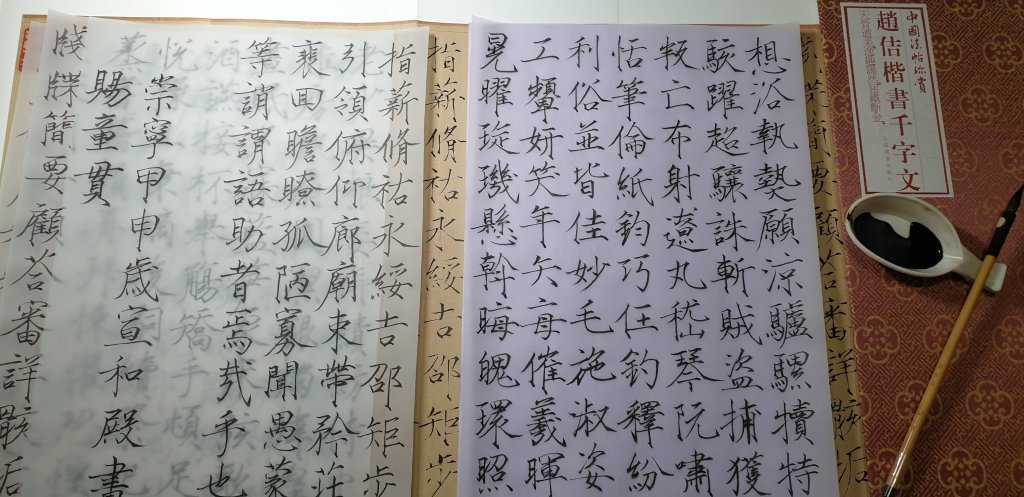 中國法帖珍賞
趙佶楷書千字文
要顧答審詳骸垢
想浴執熱願涼驢騾犢特
駭躍超驤誅斬賊盜捕獲
叛亡布射遼丸嵇琴阮嘯
恬筆倫紙鈞巧任釣釋紛
利俗並皆佳妙毛施淑姿
工顰妍笑年矢每催羲暉
晃曜琁璣懸斡晦魄環照
指薪脩祜永綏吉邵矩步
指薪脩祜永綏吉邵矩步
引領俯仰廊廟束帶矜莊
裵回瞻眺孤陋寡聞愚蒙
等誚謂語助者焉哉乎也
崇寧甲申歲宣和殿書
賜童貫
牋牒簡要顧答審詳骸垢